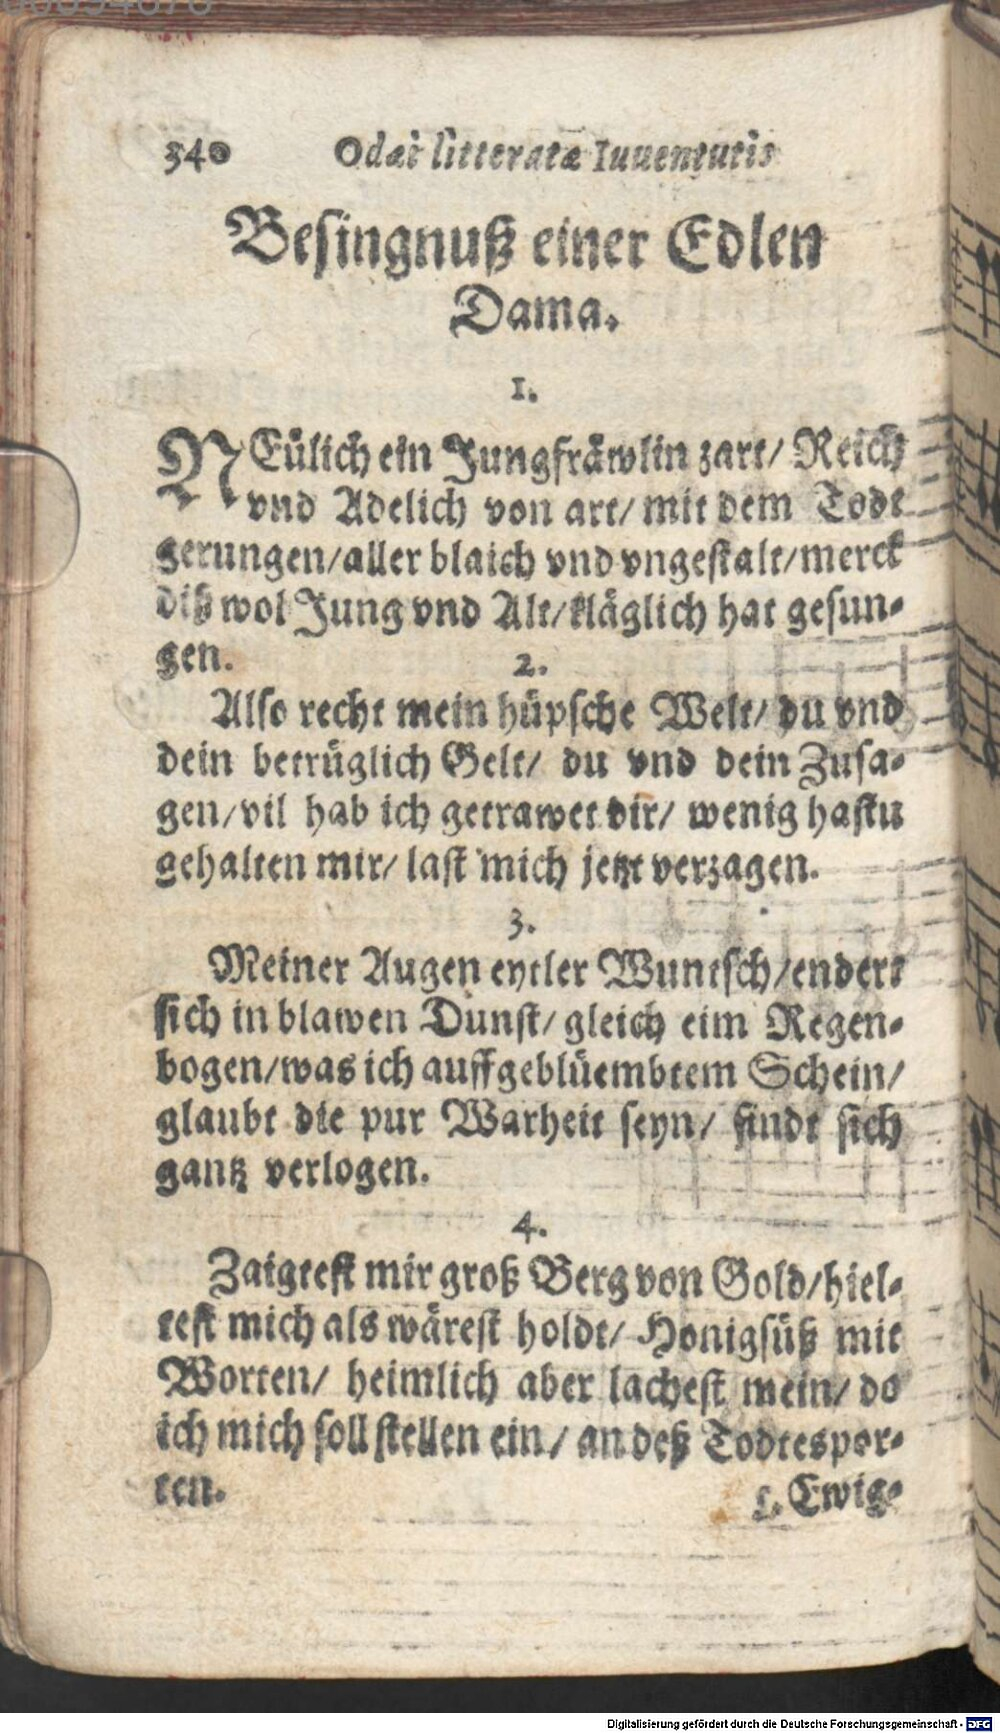 340 Odæ litteratæ Iuuentutis
Besingnuß einer Edlen
Dama.
1.
NEülich ein Jungfräwlin zart/ Reich
vnd Adelich von art/ mit dem Todt
gerungen/aller blaich vnd vngestalt/merck
diß wol Jung vnd Alt/kläglich hat gesun-
gen.
2.
Also recht mein hüpsche Welt/ du vnd
dein betrüglich Gelt/ du vnd dein Zusa-
gen/vil hab ich getrawet dir/ wenig hastu
gehalten mir/ last mich jetzt verzagen.
3.
Meiner Augen eytler Wuntsch/endert
sich in blawen Dunst/ gleich eim Regen-
bogen/was ich auffgeblüembtem Schein/
glaubt die pur Warheit seyn/ findt sich
gantz verlogen.
4.
Zaigtest mir groß Berg von Gold/hiel-
test mich als wärest holdt/ Honigsüß mit
Worten/ heimlich aber lachest mein/ do
ich mich soll stellen ein/ an deß Todtespor-
ten.
5. Ewig-
Digitalisierung gefördert durch die Deutsche Forschungsgemeinschaft - DFG